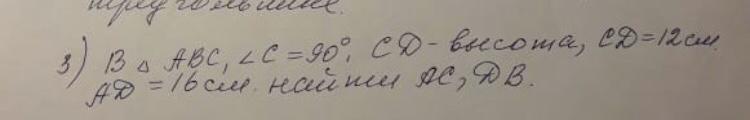 треугольнике.
3) В △ ABC, ∠C = 90°, CD - высота, CD = 12 см.
AD = 16 см. найти AC, DB.